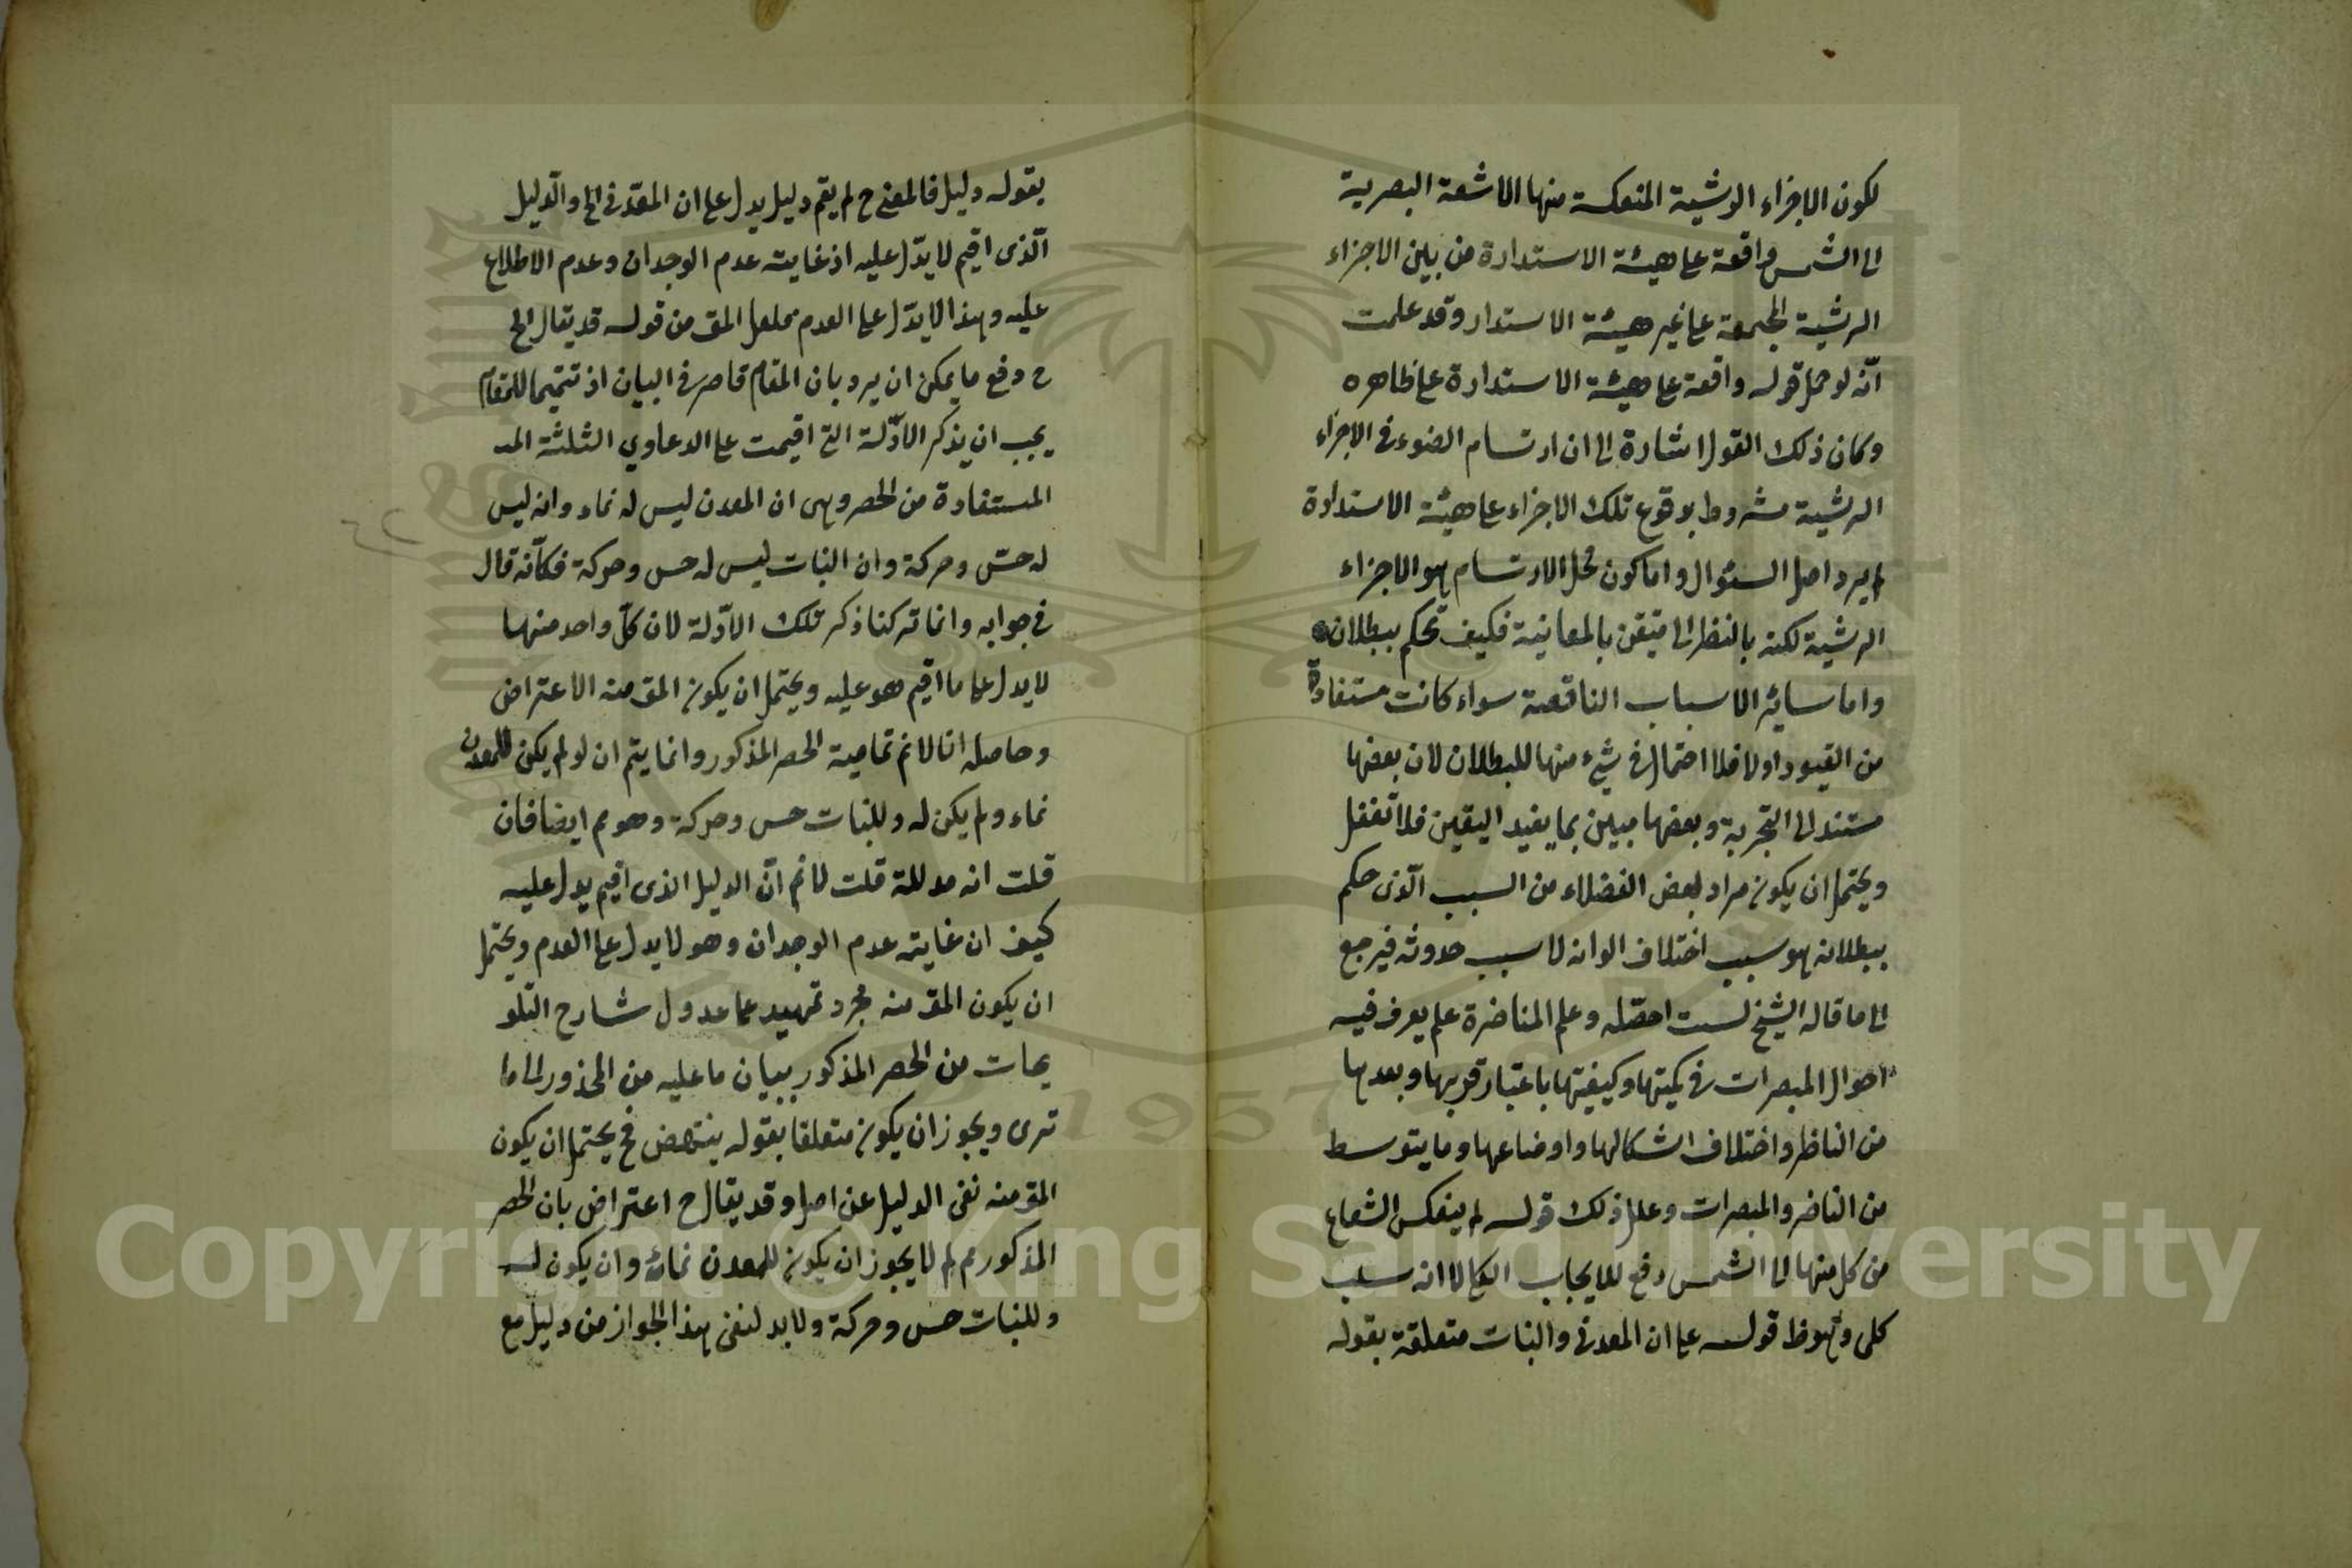 لكون الاجزاء الرشية المنعكسة منها الاشعة البصرية
الى الشمس واقعة على هيئة الاستدارة من بين الاجزاء
الرشية المجتمعة على غير هيئة الاستدار وقد علمت
انّه لو حمل قوله واقعة على هيئة الاستدارة على ظاهره
وكان ذلك القول اشارة الى ان ارتسام الضوء في الاجزاء
الرشية مشروط بوقوع تلك الاجزاء على هيئة الاستدارة
لم يرد اصل السئوال واما كون محل الارتسام هو الاجزاء
الرشية لكنه بالنظر الى متيقن بالمعاينة فكيف تحكم ببطلان
واما سائر الاسباب الناقصة سواء كانت مستفادة
من القيود اولا فلا احتمال في شيء منها للبطلان لان بعضها
مستند الى التجربة وبعضها مبين بما يفيد اليقين فلا تغفل
ويحتمل ان يكون مراد بعض الفضلاء من السبب الّذى حكم
ببطلانه هو سبب اختلاف الوانه لا سبب حدوثه فيرجع
الى ما قاله الشيخ لست احصّله وعلم المناضرة علم يعرف فيه
احوال المبصرات في كميتها وكيفيتها باعتبار قربها وبعدها
من الناظر واختلاف اشكالها واوضاعها وما يتوسط
من الناضر والمبصرات وعلل ذلك قوله لم ينعكس الشعاع
من كل منها الى الشمس رفع للايجاب الكلى لا انه سلب
كلى قوله على ان المعدن والنبات متعلقة بقوله
يقوله دليل فالمعنى ح لم يقم دليل يدل على ان المعدنى الخ والدّليل
الّذى اقيم لا يدّل عليه اذ غايته عدم الوجدان وعدم الاطلاع
عليه وهذا لا يدّل على العدم المق من قوله قد يقال الخ
ح دفع ما يمكن ان يرد بان المقام قاصر في البيان اذ تتميما للمقام
يجب ان يذكر الادّلة التى اقيمت على الدعاوي الثلثة المد
المستفادة من الحصر وهى ان المعدن ليس له نماء وانه ليس
له حسّ وحركة وان النبات ليس له حس وحركة فكأنه قال
في جوابه وانما تركنا ذكر تلك الادّلة لان كلّ واحد منها
لا يدل على ما اقيم هو عليه ويحتمل ان يكون المق منه الاعتراض
وحاصله انا لانم تمامية الحصر المذكور وانما يتم ان لو لم يكن للمعدن
نماء ولم يكن له وللنبات حس وحركة وهو مم ايضا فان
قلت انه مدللة قلت لانم انّ الدليل الذى اقيم يدل عليه
كيف ان غايته عدم الوجدان وهو لا يدل على العدم ويحتمل
ان يكون المق منه مجرد تمهيد عما عدول شارح التلو
يحات من الحصر المذكور ببيان ما عليه من المحذور الى ما
ترى ويجوز ان يكون متعلقا بقوله ينتهض فح يحتمل ان يكون
المق منه نفى الدليل عن اصل وقد يقال ح اعتراض بان الحصر
المذكور مم لم لا يجوز ان يكون للمعدن نماء وان يكون له
وللنبات حس وحركة ولا بد لنفى هذا الجواز من دليل مع
Copyright © King Saud University
1957